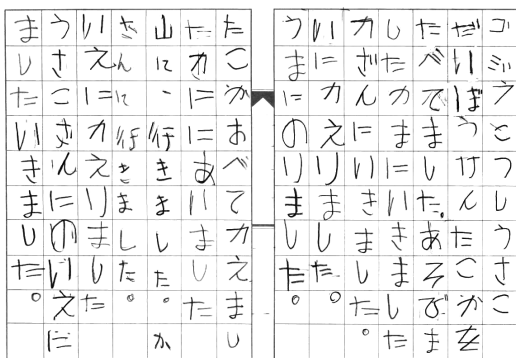 ゴミうとつしうさこ
だいばうけんたこかを
たべでました。あそびま
したカまにいきました
カざんにいきました。
いにカえりました。
うまにのりました。
たこがおべてカえまし
たオににあいました
山に、行きました。か
ざんに行きました。
いえにカえりました
うさこざんにのいえに
ましたいきました。